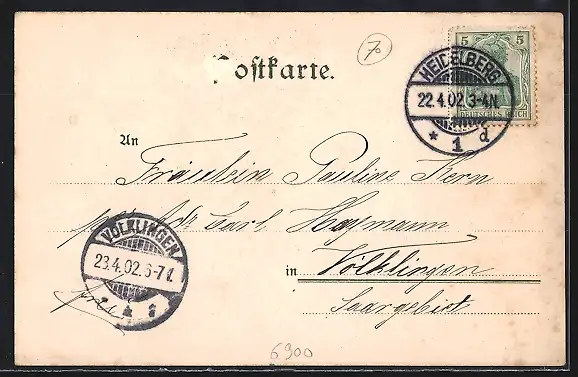 70
Postkarte.
5 5
DEUTSCHES REICH
HEIDELBERG
22.4.02.3-4N.
* 1 d
An
Fräulein Pauline Kern
per Adr Carl Heymann
in Völklingen
Saargebiet
VÖLKLINGEN
23.4.02.6-7
6900